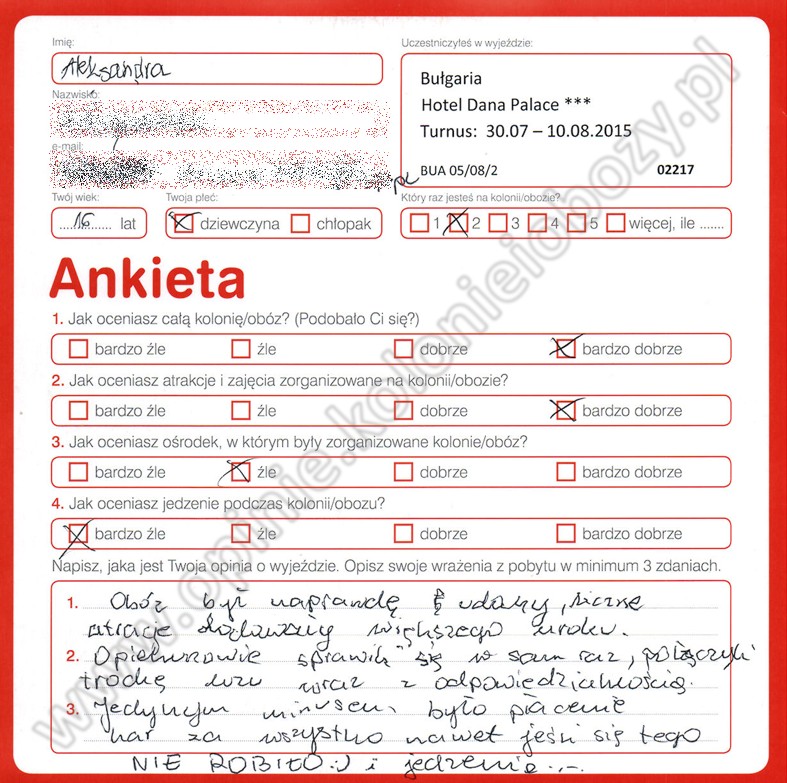 Imię:
Aleksandra
Uczestniczyłeś w wyjeździe:
Bułgaria
Hotel Dana Palace ***
Turnus: 30.07 – 10.08.2015
BUA 05/08/2 02217
Nazwisko:
e-mail:
pl
Twój wiek: Twoja płeć: Który raz jesteś na kolonii/obozie?
16 lat dziewczyna chłopak 1 2 3 4 5 więcej, ile .......
Ankieta
1. Jak oceniasz całą kolonię/obóz? (Podobało Ci się?)
bardzo źle źle dobrze bardzo dobrze
2. Jak oceniasz atrakcje i zajęcia zorganizowane na kolonii/obozie?
bardzo źle źle dobrze bardzo dobrze
3. Jak oceniasz ośrodek, w którym były zorganizowane kolonie/obóz?
bardzo źle źle dobrze bardzo dobrze
4. Jak oceniasz jedzenie podczas kolonii/obozu?
bardzo źle źle dobrze bardzo dobrze
Napisz, jaka jest Twoja opinia o wyjeździe. Opisz swoje wrażenia z pobytu w minimum 3 zdaniach.
1. Obóz był naprawdę udany, liczne
atracje większego uroku.
2. Opiekunowie sprawili się w sam raz, połączyli
trochę luzu wraz z odpowiedzialnością.
3. Jedynym minusem było płacenie
kar za wszystko nawet jeśli się tego
NIE ROBIŁO :) i jedzenie...
www.opinie.kolonieiobozy.pl